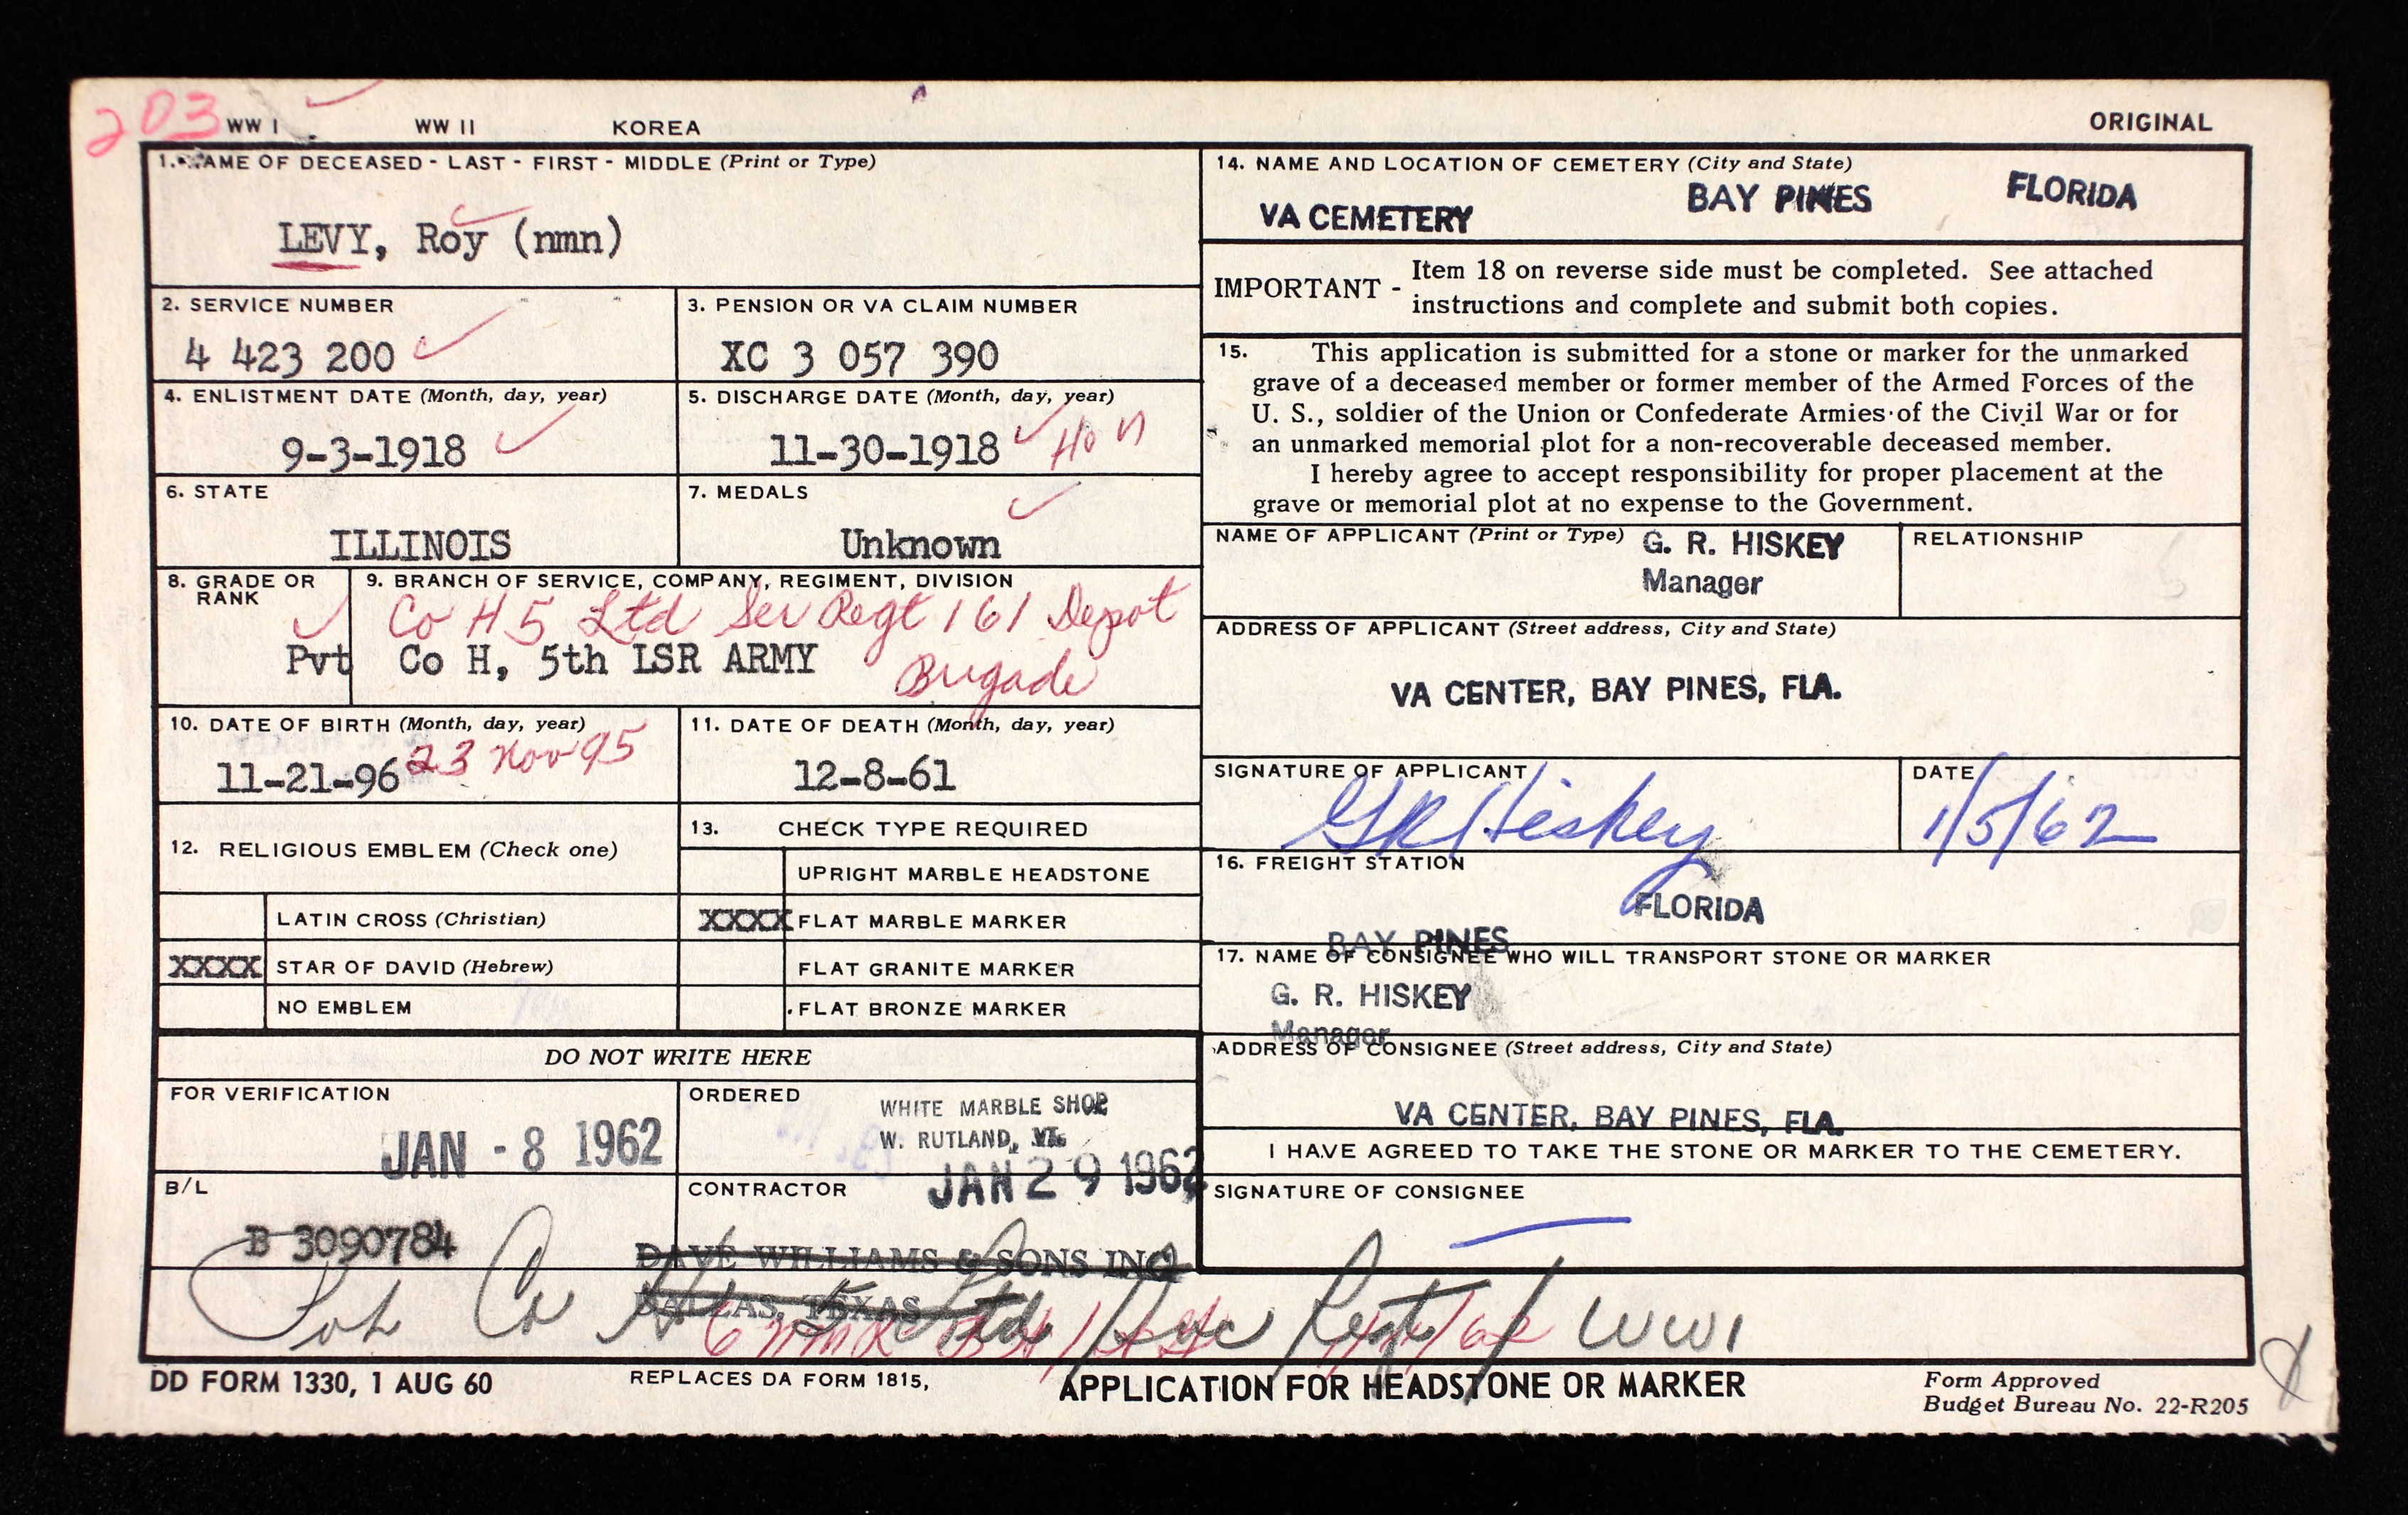 203 WW I WW II KOREA ORIGINAL
1. NAME OF DECEASED - LAST - FIRST - MIDDLE (Print or Type)
LEVY, Roy (nmn)
2. SERVICE NUMBER
4 423 200
3. PENSION OR VA CLAIM NUMBER
XC 3 057 390
4. ENLISTMENT DATE (Month, day, year)
9-3-1918
5. DISCHARGE DATE (Month, day, year)
11-30-1918 Hon
6. STATE
ILLINOIS
7. MEDALS
Unknown
8. GRADE OR
RANK
Pvt
9. BRANCH OF SERVICE, COMPANY, REGIMENT, DIVISION
Co H 5 Ltd Ser Regt 161 Depot
Brigade
Co H, 5th LSR ARMY
10. DATE OF BIRTH (Month, day, year)
23 Nov 95
11-21-96
11. DATE OF DEATH (Month, day, year)
12-8-61
12. RELIGIOUS EMBLEM (Check one)
LATIN CROSS (Christian)
XXXX STAR OF DAVID (Hebrew)
NO EMBLEM
13. CHECK TYPE REQUIRED
UPRIGHT MARBLE HEADSTONE
XXXX FLAT MARBLE MARKER
FLAT GRANITE MARKER
FLAT BRONZE MARKER
DO NOT WRITE HERE
FOR VERIFICATION
JAN - 8 1962
ORDERED
WHITE MARBLE SHOP
W. RUTLAND, VT.
JAN 29 1962
B/L
B 3090784
CONTRACTOR
DAVE WILLIAMS & SONS INC
DALLAS, TEXAS
14. NAME AND LOCATION OF CEMETERY (City and State)
VA CEMETERY BAY PINES FLORIDA
IMPORTANT - Item 18 on reverse side must be completed. See attached
instructions and complete and submit both copies.
15. This application is submitted for a stone or marker for the unmarked
grave of a deceased member or former member of the Armed Forces of the
U. S., soldier of the Union or Confederate Armies of the Civil War or for
an unmarked memorial plot for a non-recoverable deceased member.
I hereby agree to accept responsibility for proper placement at the
grave or memorial plot at no expense to the Government.
NAME OF APPLICANT (Print or Type) G. R. HISKEY
Manager
RELATIONSHIP
ADDRESS OF APPLICANT (Street address, City and State)
VA CENTER, BAY PINES, FLA.
SIGNATURE OF APPLICANT
GR Hiskey
DATE
1/5/62
16. FREIGHT STATION
FLORIDA
BAY PINES
17. NAME OF CONSIGNEE WHO WILL TRANSPORT STONE OR MARKER
G. R. HISKEY
Manager
ADDRESS OF CONSIGNEE (Street address, City and State)
VA CENTER, BAY PINES, FLA.
I HAVE AGREED TO TAKE THE STONE OR MARKER TO THE CEMETERY.
SIGNATURE OF CONSIGNEE
Co H 5 Ltd Regt WWI
DD FORM 1330, 1 AUG 60 REPLACES DA FORM 1815, APPLICATION FOR HEADSTONE OR MARKER
Form Approved
Budget Bureau No. 22-R205